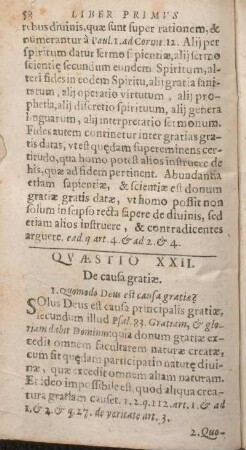 58 LIBER PRIMVS
rebus diuinis, quæ sunt super rationem, &
numerantur à Paul. 1. ad Corint. 12. Alij per
spiritum datur sermo sapientiæ, alij sermo
scientię secundum eundem Spiritum, al-
teri fides in eodem Spiritu, alij gratia sani-
tatum, alij operatio virtutum, alij pro-
phetia, alij discretio spirituum, alij genera
linguarum, alij interpretatio sermonum.
Fides autem continetur inter gratias gra-
tis datas, vt est quędam supereminens cer-
titudo, qua homo potest alios instruere de
his, quæ ad fidem pertinent. Abundantia
etiam sapientiæ, & scientiæ est donum
gratiæ gratis datæ, vt homo possit non
solum in seipso recta sapere de diuinis, sed
etiam alios instruere, & contradicentes
arguere. ead. q. art. 4. & ad 2. & 4.
QVÆSTIO XXII.
De causa gratiæ.
1. Quomodo Deus est causa gratiæ?
SOlus Deus est causa principalis gratiæ,
secundum illud Psal. 83. Gratiam, & glo-
riam dabit Dominus: quia donum gratiæ ex-
cedit omnem facultatem naturæ creatæ,
cum sit quędam participatio naturę diui-
næ, quæ excedit omnem aliam naturam.
Et ideo impossibile est, quod aliqua crea-
tura gratiam causet. 1. 2. q. 112. art. 1. & ad
1. & 2. & q. 27. de veritate art. 3.
2. Quo-